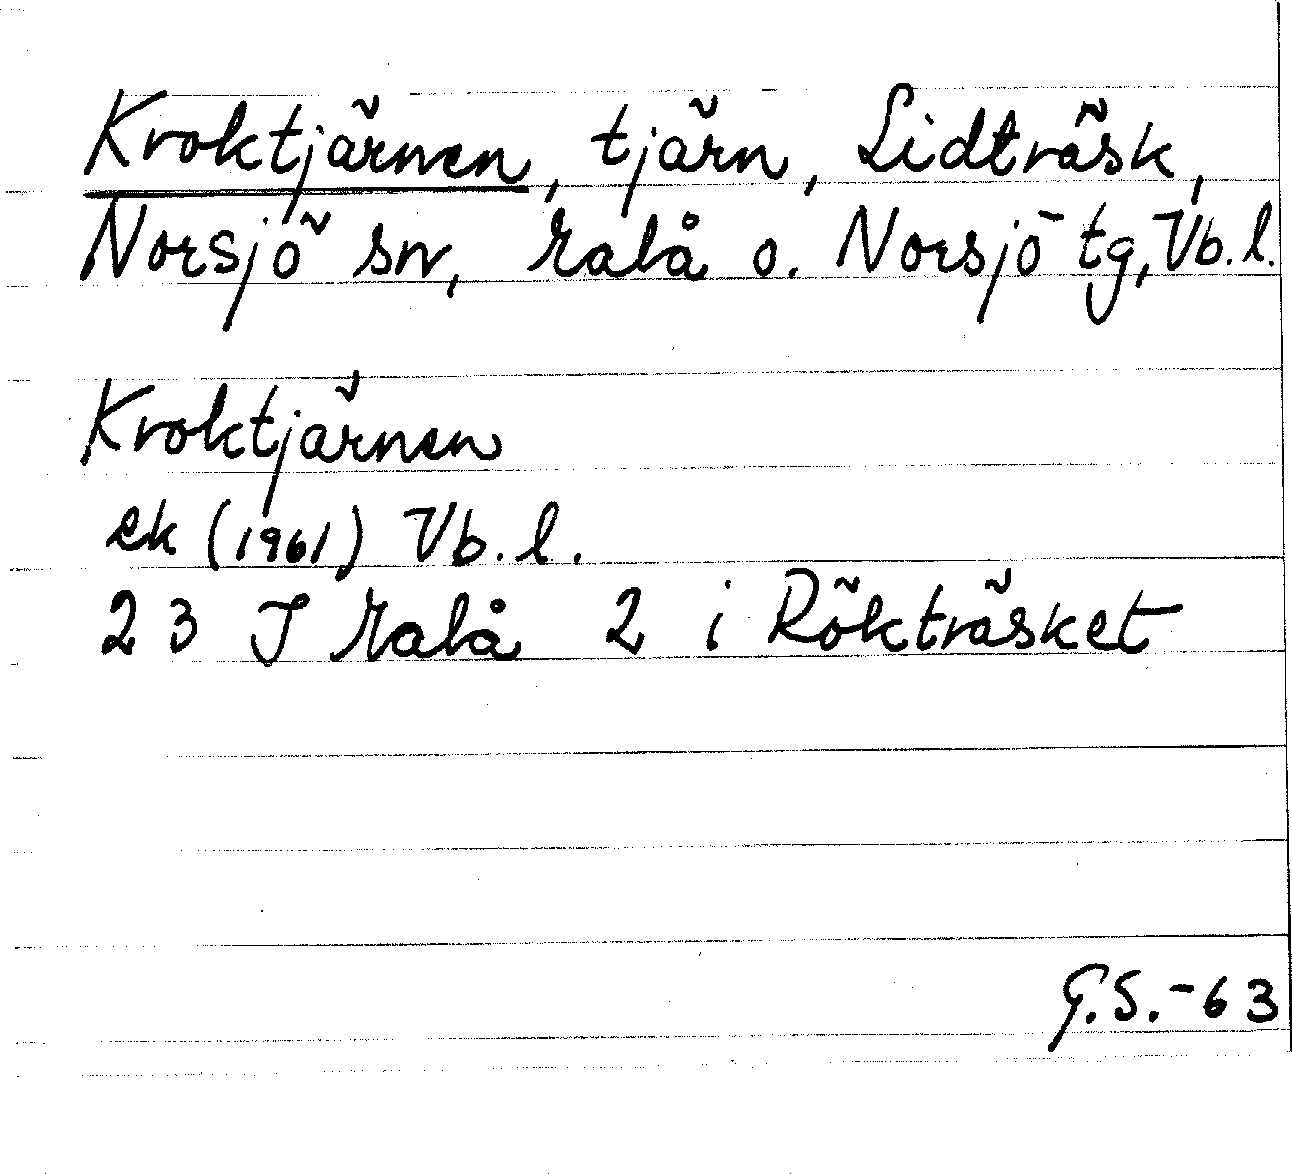 Kroktjärnen, tjärn, Lidträsk,
Norsjö sn, Malå o. Norsjö tg, Vb. l.
Kroktjärnen
ek (1961) Vb. l.
23 J Malå 2 i Rökträsket
G.S.-63